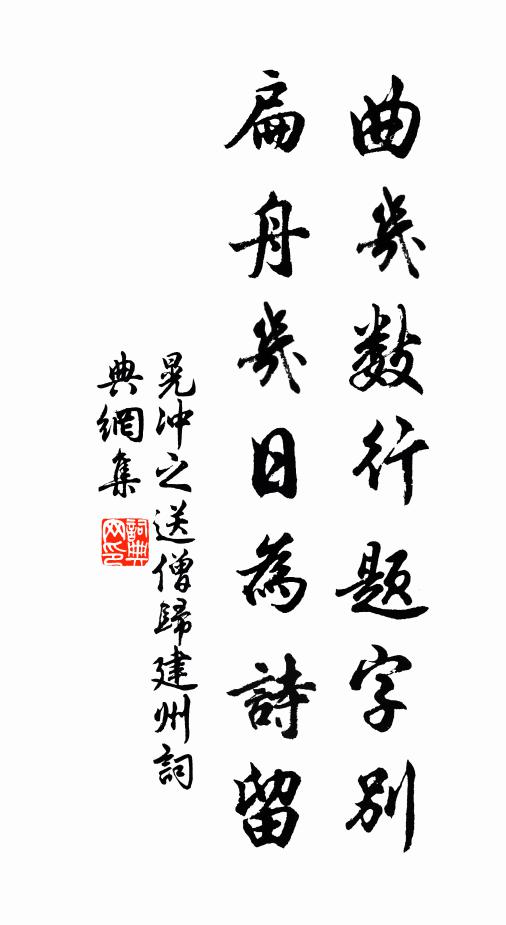 曲几数行题字别
扁舟几日為詩留
晁冲之送僧歸建州詞
典網集
詞典
网印